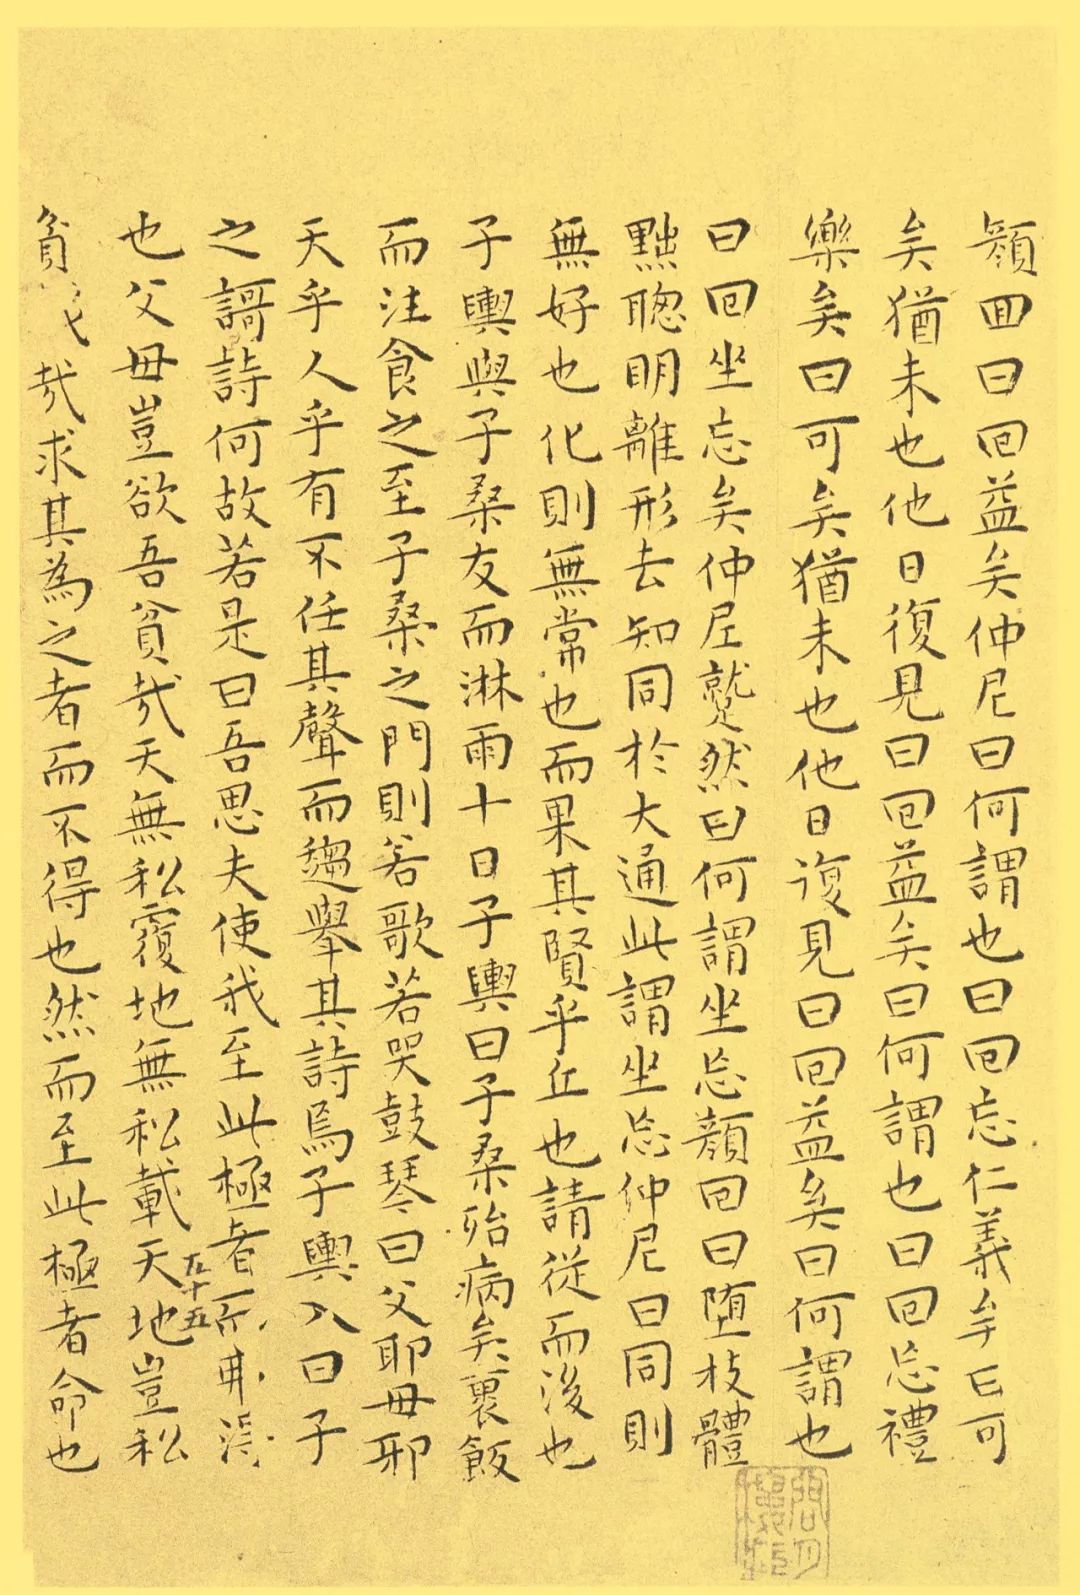 顏回曰回益矣仲尼曰何謂也曰回忘仁義矣曰可
矣猶未也他日復見曰回益矣曰何謂也曰回忘禮
樂矣曰可矣猶未也他日復見曰回益矣曰何謂也
曰回坐忘矣仲尼蹵然曰何謂坐忘顏回曰墮枝體
黜聰明離形去知同於大通此謂坐忘仲尼曰同則
無好也化則無常也而果其賢乎丘也請從而後也
子輿與子桑友而淋雨十日子輿曰子桑殆病矣裹飯
而注食之至子桑之門則若歌若哭鼓琴曰父耶母耶
天乎人乎有不任其聲而趨舉其詩焉子輿入曰子
之謌詩何故若是曰吾思夫使我至此極者而弗得
五十五
也父母豈欲吾貧哉天無私覆地無私載天地豈私
貧哉求其為之者而不得也然而至此極者命也